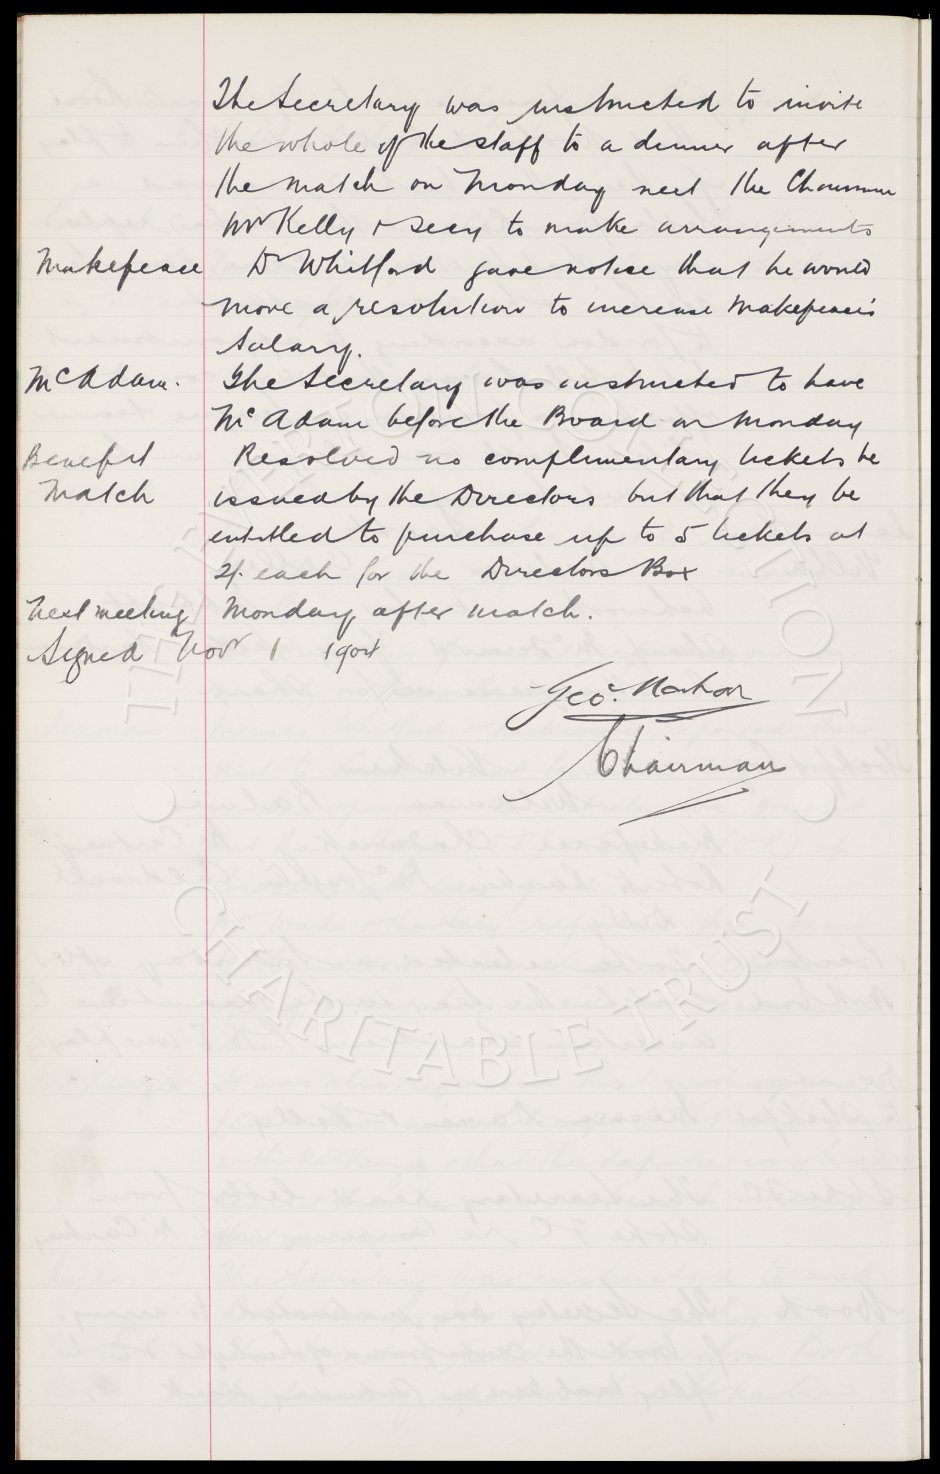 The Secretary was instructed to invite
the whole of the staff to a dinner after
the match on Monday next the Chairman
Mr Kelly & Secy to make arrangements
Makepeace Dr Whitford gave notice that he would
move a resolution to increase Makepeace's
Salary.
McAdam. The Secretary was instructed to have
McAdam before the Board on Monday
Benefit Resolved no complimentary tickets be
Match issued by the Directors but that they be
entitled to purchase up to 5 tickets at
2/- each for the Directors Box
Next meeting Monday after match.
Signed Novr 1 1904
Geo. Mahon
Chairman
THE EVERTON COLLECTION
CHARITABLE TRUST